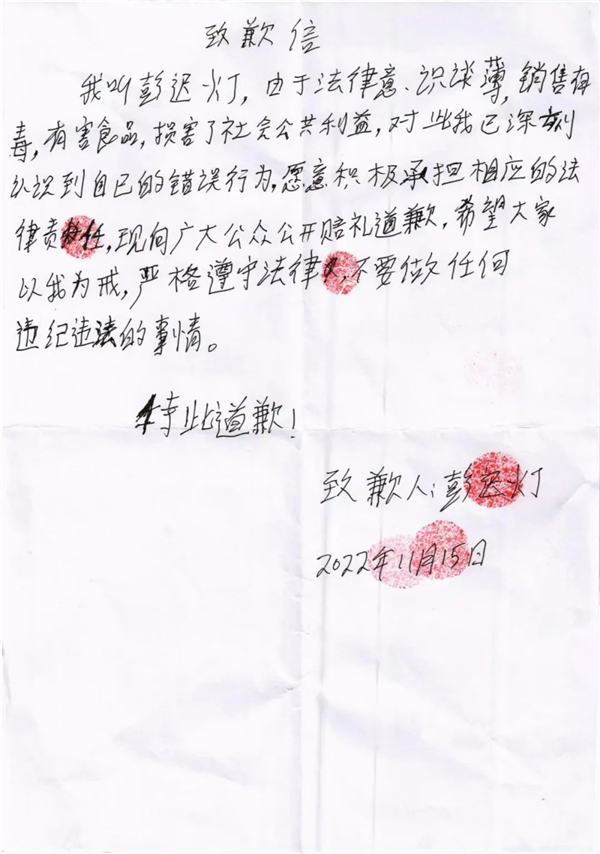 致歉信
我叫彭迟灯,由于法律意、识淡薄,销售有
毒,有害食品,损害了社会公共利益,对此我已深刻
认识到自己的错误行为,愿意积极承担相应的法
律责任,现向广大公众公开赔礼道歉,希望大家
以我为戒,严格遵守法律,不要做任何
违纪违法的事情。
特此道歉!
致歉人:彭迟灯
2022年11月15日